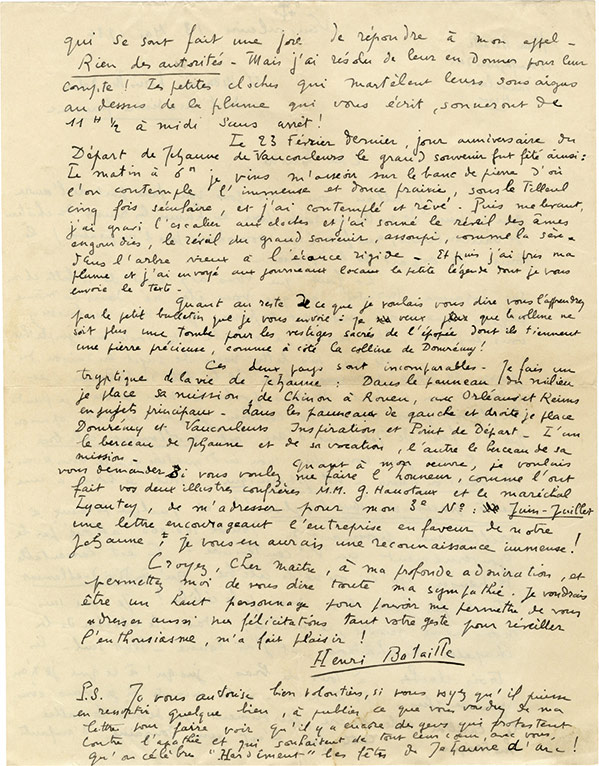 qui se sont fait une joie de répondre à mon appel -
Rien des autorités - Mais j'ai résolu de leur en donner pour leur
compte ! Les petites cloches qui martèlent leurs sons aigus
au dessus de la plume qui vous écrit, sonneront de
11 H ½ à midi sans arrêt !
Le 23 Février dernier, jour anniversaire du
Départ de Jehanne de Vaucouleurs le grand souvenir fut fêté ainsi :
Le matin à 6h je vins m'asseoir sur le banc de pierre d'où
l'on contemple l'immense et douce prairie, sous le Tilleul
cinq fois séculaire, et j'ai contemplé et rêvé - Puis me levant,
j'ai gravi l'escalier aux cloches et j'ai sonné le réveil des âmes
engourdies, le réveil du grand souvenir, assoupi, comme la sève
dans l'arbre vieux à l'écorce rigide - Et puis j'ai pris ma
plume et j'ai envoyé aux journeaux locaux la petite légende dont je vous
envoie le texte -
Quant au reste de ce que je voulais vous dire vous l'apprendrez
par le petit bulletin que je vous envoie : Je ne veux plus que la colline ne
soit plus une Tombe pour les vestiges sacrés de l'épopée dont ils tiennent
une pierre précieuse, comme à côté la colline de Domrémy !
Ces deux pays sont incomparables - Je fais un
tryptique de la vie de Jehanne : Dans le panneau du milieu
je place sa mission, de Chinon à Rouen, avec Orléans et Reims
en sujets principaux - dans les panneaux de gauche et droite je place
Domrémy et Vaucouleurs Inspirations et Point de Départ - L'un
le berceau de Jehanne et de sa vocation, l'autre le berceau de sa
mission -
Quant à mon oeuvre, je voulais
vous demander si vous voulez me faire l'honneur, comme l'ont
fait vos deux illustres confrères M.M. G. Hanotaux et le maréchal
Lyautey, de m'adresser pour mon 3e No : Juin-Juillet
une lettre encourageant l'entreprise en faveur de notre
Jehanne ? Je vous en aurais une reconnaissance immense !
Croyez, cher maitre, à ma profonde admiration, et
permettez moi de vous dire toute ma sympathie. Je voudrais
être un haut personnage pour pouvoir me permettre de vous
adresser aussi mes félicitations tant votre geste pour réveiller
l'enthousiasme, m'a fait plaisir !
Henri Bataille
P.S. Je vous autorise bien volontiers, si vous voyez qu'il puisse
en ressortir quelque bien, à publier ce que vous voudrez de ma
lettre pour faire voir qu'il y a encore des gens qui protestent
contre l'apathie et qui souhaitent de tout leur coeur, avec vous,
qu'on célèbre "Hardiment" les fêtes de Jehanne d'Arc !